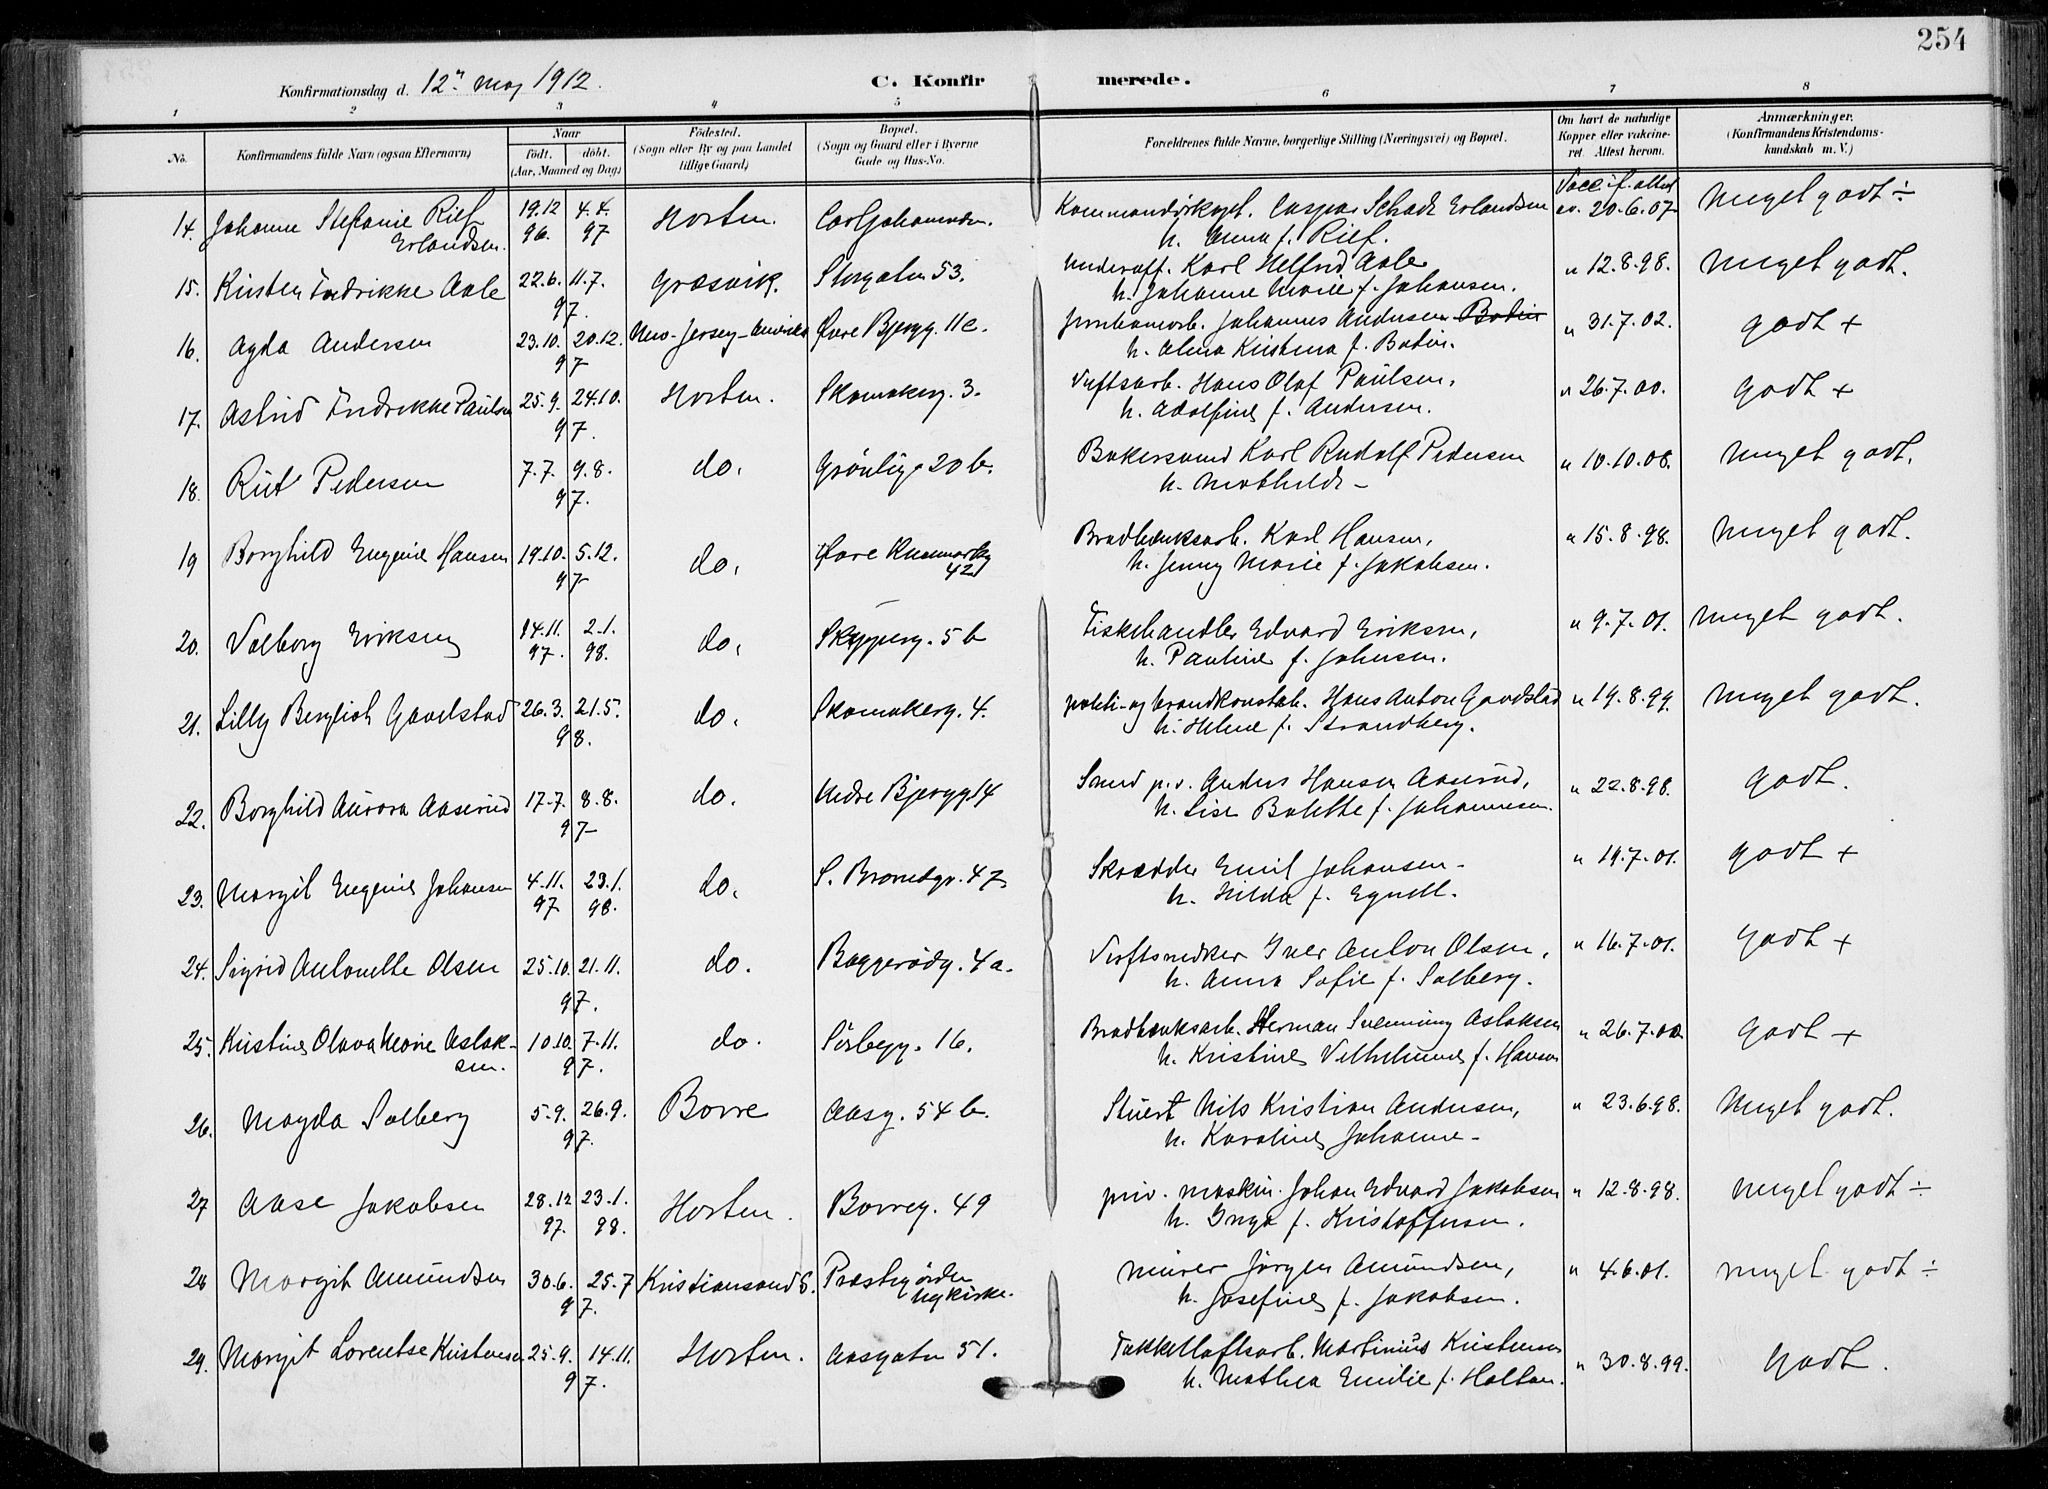 254
Konfirmationsdag d. 12. Maj 1912. C. Konfirmerede.
1 2 3 4 5 6 7 8
No. Konfirmandens fulde Navn (ogsaa Efternavn) Naar født. døbt. (Aar, Maaned og Dag) Fødested. (Sogn eller By og paa Landet tillige Gaard) Bopæl. (Sogn og Gaard eller i Byerne Gade og Hus-No. Forældrenes fulde Navne, borgerlige Stilling (Næringsvei) og Bopæl. Om havt de naturlige Kopper eller vakcineret. Attest herom. Anmærkninger. (Konfirmandens Kristendomskundskab m. V.)
14. Johanne Stefanie Rief 19.12 4.4. Horten. Carl Johansen. Kommandørkapt. Caspar Schack Erlandsen Vacc. f. attest av. 20-6.07 Meget godt ÷
Erlandsen. 96. 97 h. Anna f. Rief.
15. Kirsten Fredrikke Aale 22.6. 11.7. Græsvik. Storgaten 53. Underoff. Karl Helfred Aale " 12.8.98. Meget godt.
97. h. Johanne Marie f. Johansen.
16. Agda Andersen 23.10. 20.12. New-Jersey-Amerika Øvre Bjergg. 11c. Johannes Andersen Bodin " 31.7.02. godt +
97 h. Alma Kristina f. Bodin.
17. Astrid Fredrikke Paulsen 25.9. 24.10. Horten. Skomakerg. 3. Verftsarb. Hans Olaf Paulsen, " 26.7.00. Godt +
97. h. Adolfine f. Andersen.
18. Rut Pedersen 7.7. 9.8. do. Grønlig. 20 b. Bakersvend Karl Rudolf Pedersen " 10.10.08. Meget godt.
97. h. Mathilde -
19 Borghild Eugenie Hansen 19.10. 5.12. do. Øvre 42 Bradbænksarb. Karl Hansen, " 15.8.98. Meget godt.
97 h. Jenny Marie f. Jakobsen.
20. Valborg Eriksen 14.11. 2.1. do. Skipperg. 5 b Fiskehandler Edvard Eriksen, " 9.7.01. Meget godt.
97. 98. h. Pauline f. Johnsen.
21. Lilly Bergliot Gavelstad 26.3. 21.5. do. Skomakerg. 4. politi- og brandkonstab. Hans Anton Gavelstad " 19.8.99. Meget godt.
98. h. Helene f. Strandberg.
22. Borghild Aurora Aaserud 17.7. 8.8. do. Nedre Bjergg. 14 Smed p.v. Anders Hansen Aaserud, " 22.8.98. Godt.
97 h. Lise Bolette f. Johannesen.
23. Margit Eugenie Johansen 4.11. 23.1. do. S. Bromsgt. 47 Skrædder Emil Johansen - " 19.7.01. godt +
97 98. h. Hilda f. Egnell.
24. Sigrid Antonette Olsen 25.10. 21.11. do. Baggerødg. 4a. Verftssnedker Iver Anton Olsen, " 16.7.01. Godt +
97. h. Anna Sofie f. Solberg.
25. Kristine Olava Marie Aslak- 10.10. 7.11. do. Sørbyg. 16. Bradbænksarb. Herman Svenning Aslaksen " 26.7.00 Godt +
sen. 97. h. Kristine Vilhelmine f. Hansen
26. Magda Solberg 5.9. 26.9. Borre Aasg. 54 b. Stuert Nils Kristian Andersen, " 23.6.98. Meget godt.
97. h. Karoline Johanne -
27 Aase Jakobsen 28.12 23.1. Horten. Borreg. 49 priv. maskin. Johan Edvard Jakobsen " 12.8.98. Meget godt ÷
97. 98. h. Inga f. Kristoffersen.
28 Margit Amundsen 30.6. 25.7 Kristianssand S. Præstegården Murer Jørgen Amundsen, " 4.6.01. Meget godt ÷
97. Nykirke. h. Josefine f. Jakobsen.
29. Margit Lorentse Kristensen 25.9. 14.11. Horten. Aasgaten 51. Takkelloftsarb. Martinius Kristensen " 30.8.99. Godt.
97. h. Mathea Emilie f. Holtan.